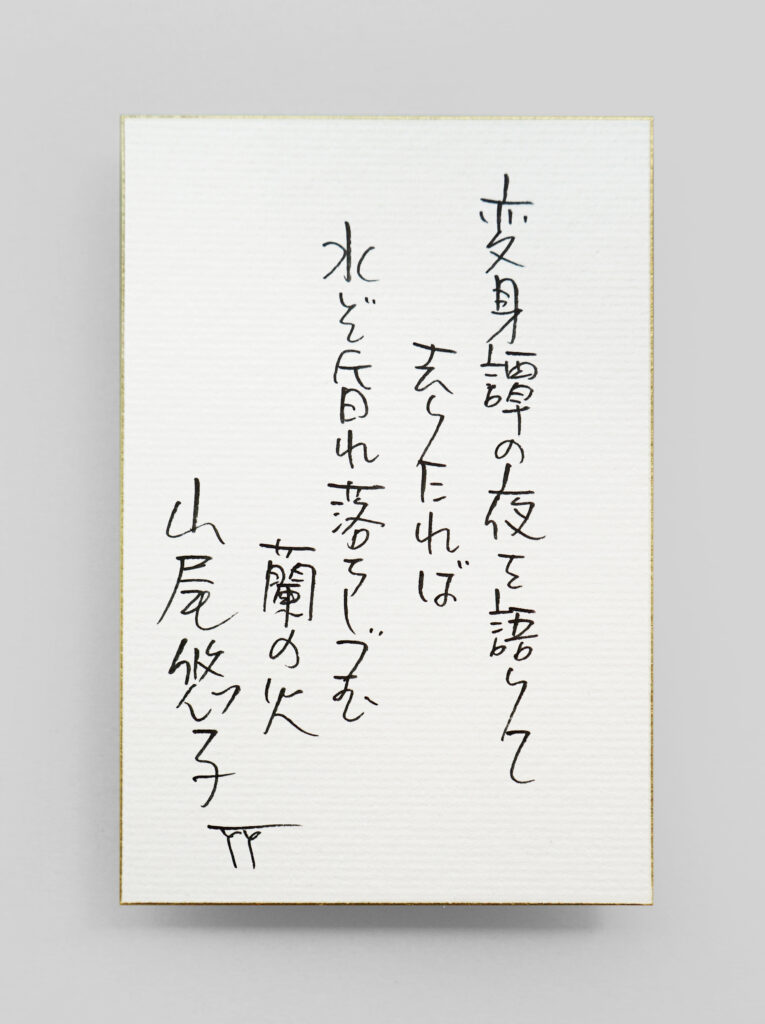 変身譚の夜を語りて
去りたれば
水ぞ昏れ落ちしづむ
蘭の火
山尾悠子